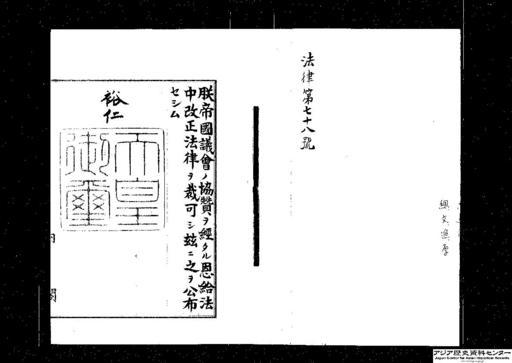 法律第七十八號
朕帝國議會ノ協贊ヲ經タル恩給法
中改正法律ヲ裁可シ玆ニ之ヲ公布
セシム
裕仁
天皇
御璽
内閣
アジア歴史資料センター
Japan Center for Asian Historical Records